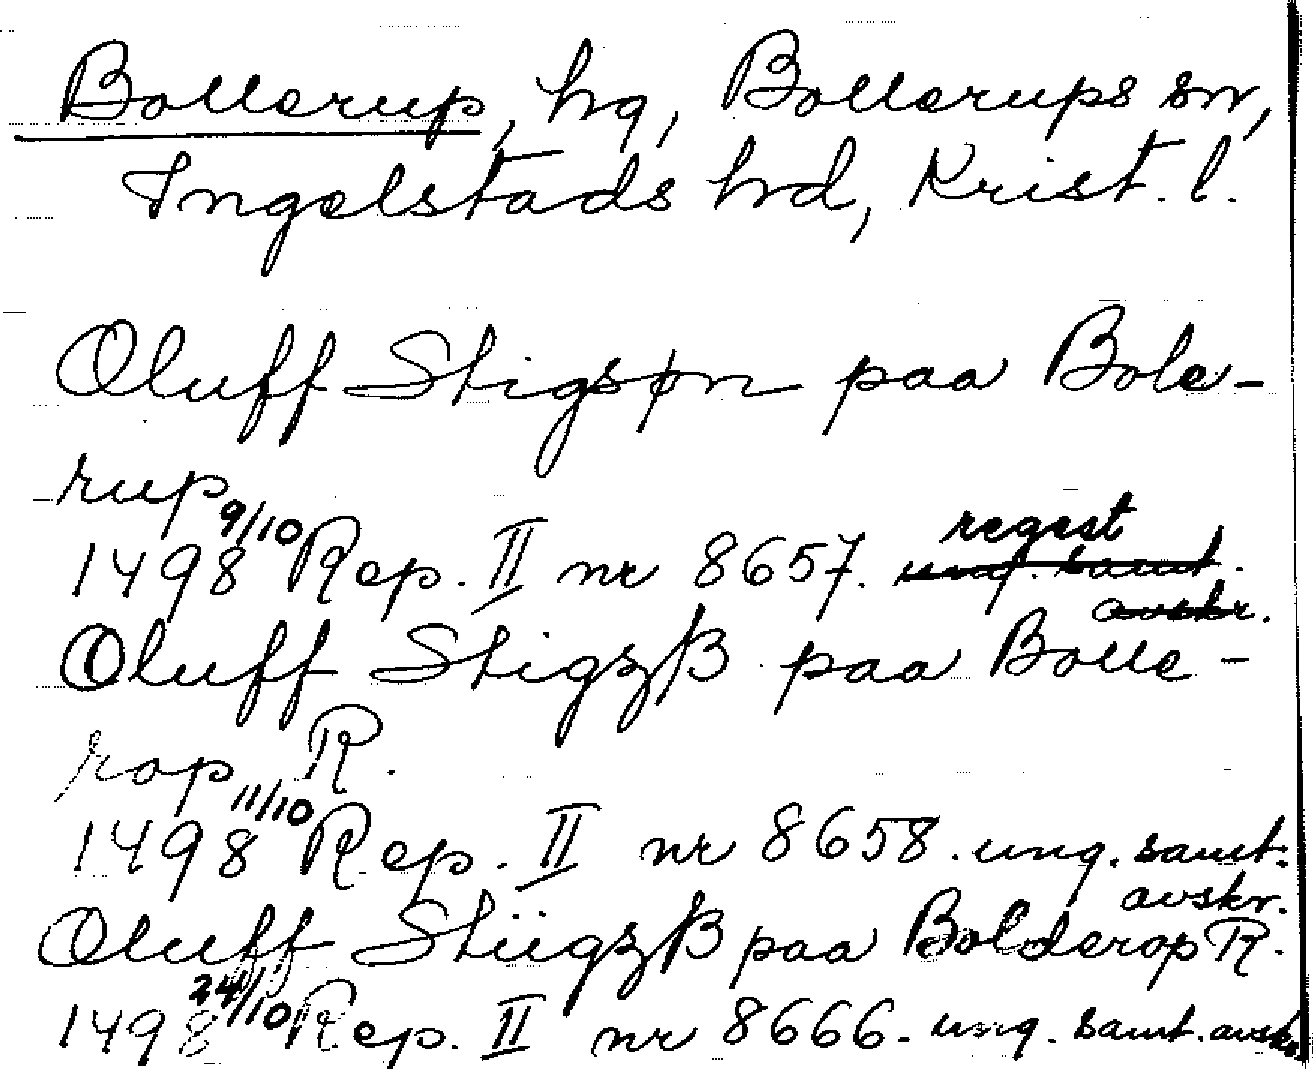 Bollerup, hg, Bollerups sn,
Ingelstads hd, Krist. l.
Oluff Stigsøn paa Bole-
rup
1498 9/10 Rep. II nr 8657. regest
ung. samt.
avskr.
Oluff Stigzß paa Bolle-
rop R.
1498 11/10 Rep. II nr 8658. ung. samt.
avskr.
Oluff Stiigzß paa Bolderop R.
1498 24/10 Rep. II nr 8666. ung. samt. avskr.